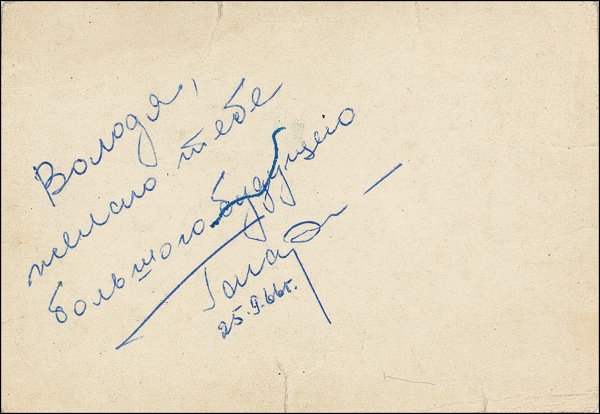 Володя,
желаю тебе
большого будущего
Гагарин
25.9.66г.